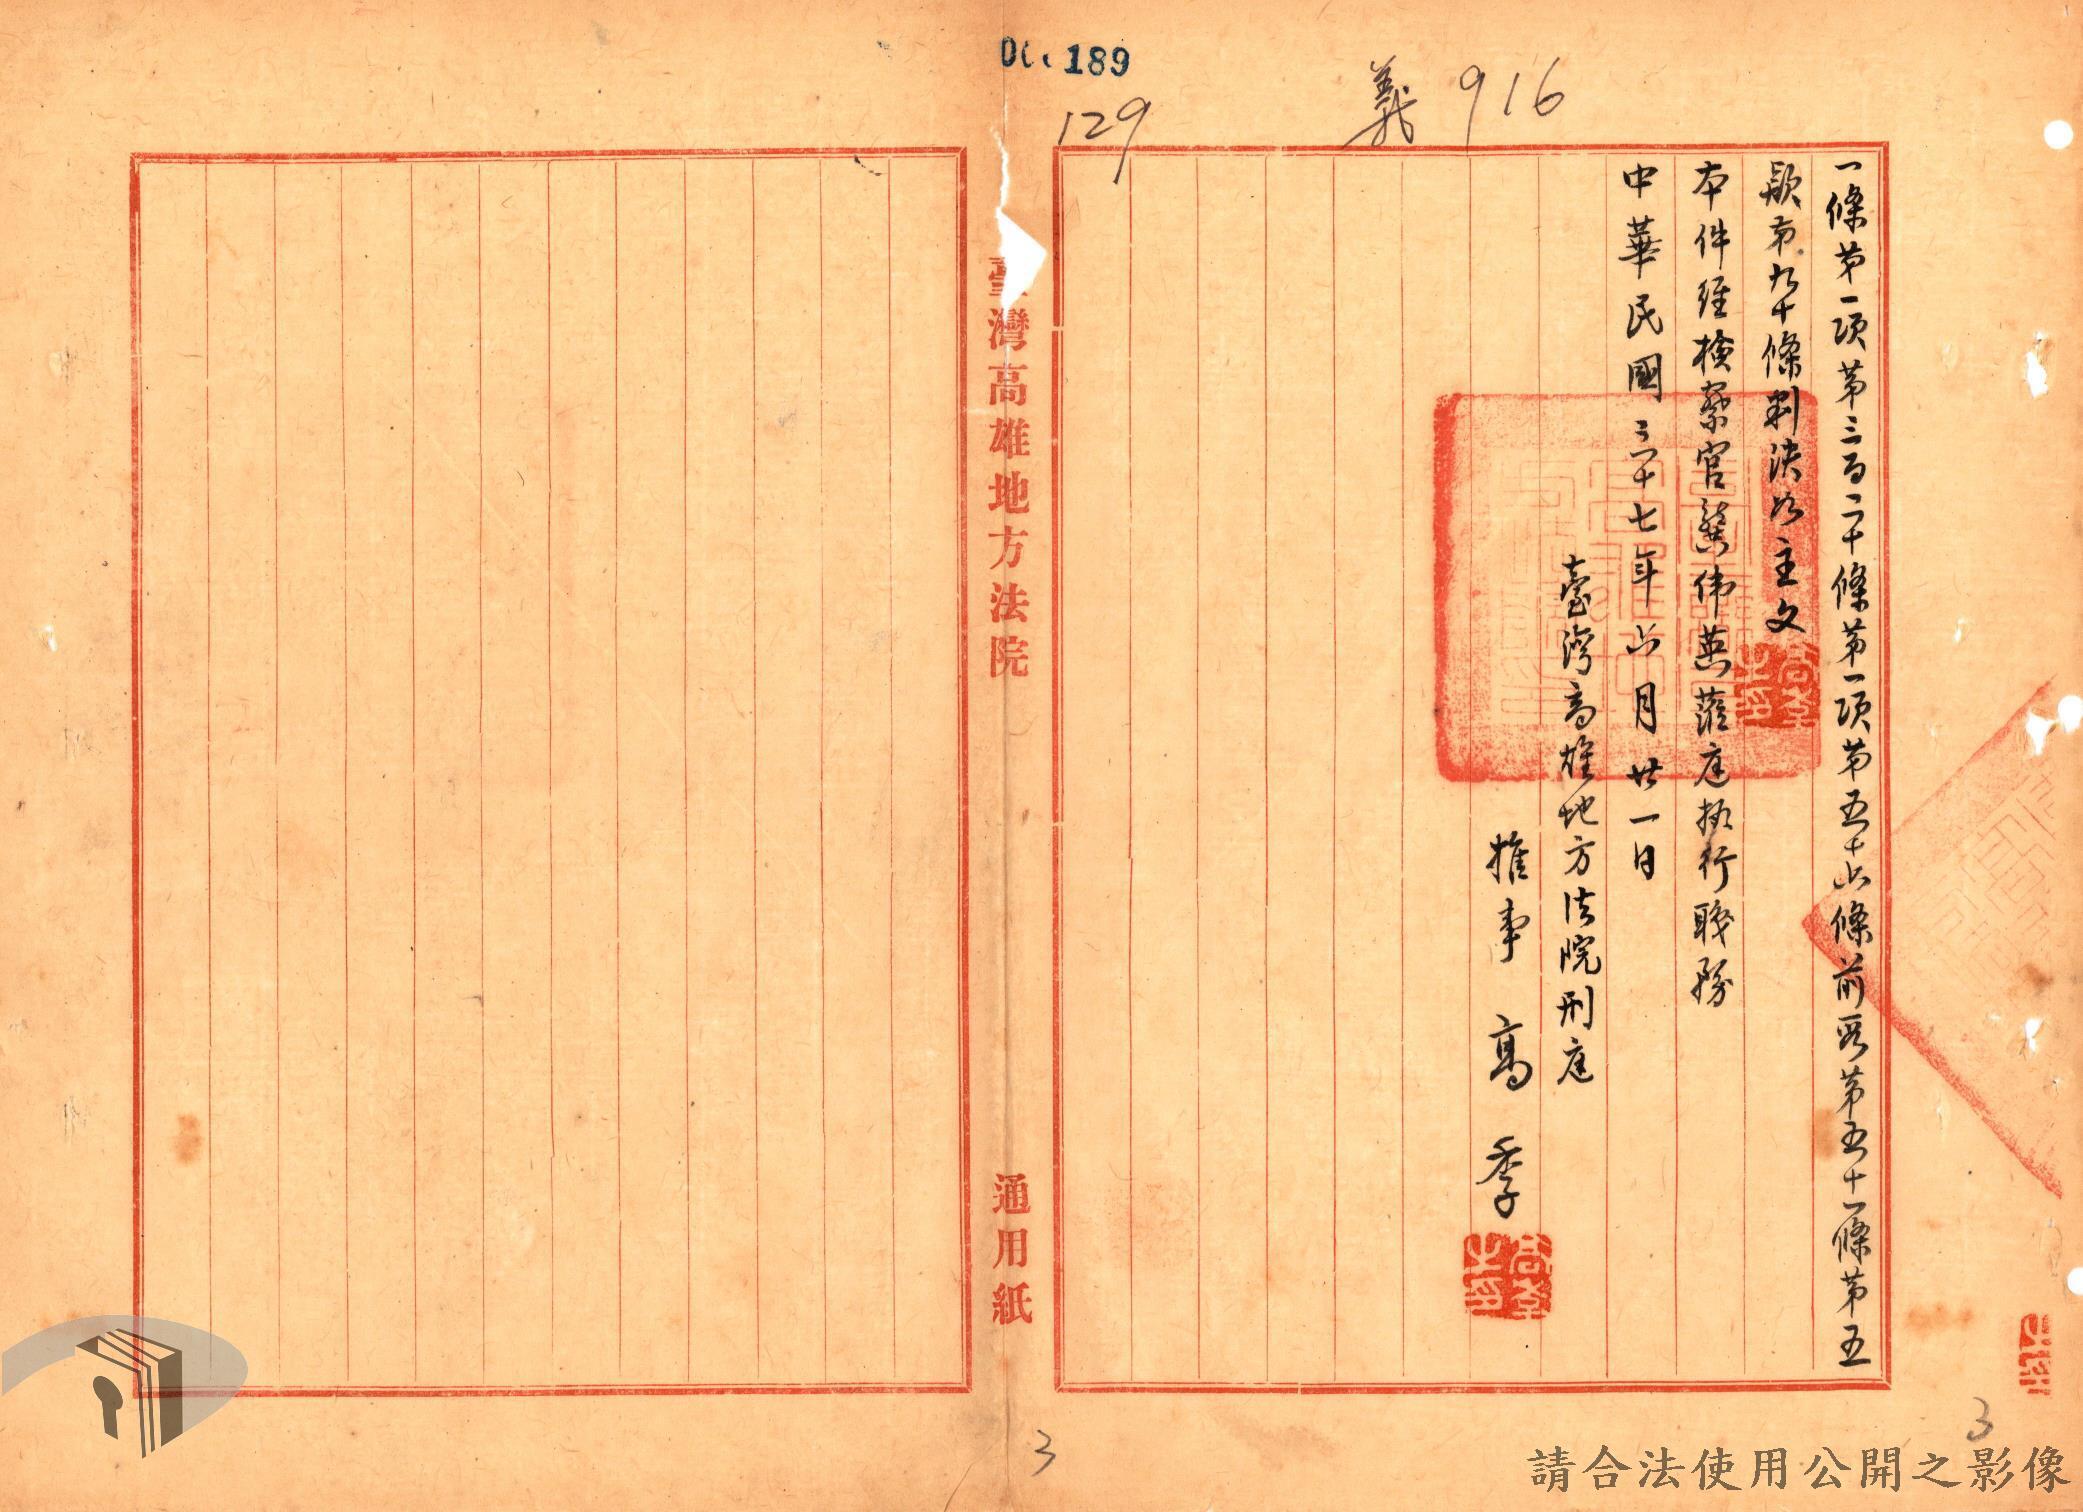 189
129
義 916
一條第一項第三百二十條第一項第五十六條前段第五十一條第五
款第九十條判決如主文
本件經檢察官龔偉英蒞庭執行職務
中華民國三十七年六月廿一日
臺灣高雄地方法院刑庭
推事 高 季
臺灣高雄地方法院
通用紙
3
3
請合法使用公開之影像